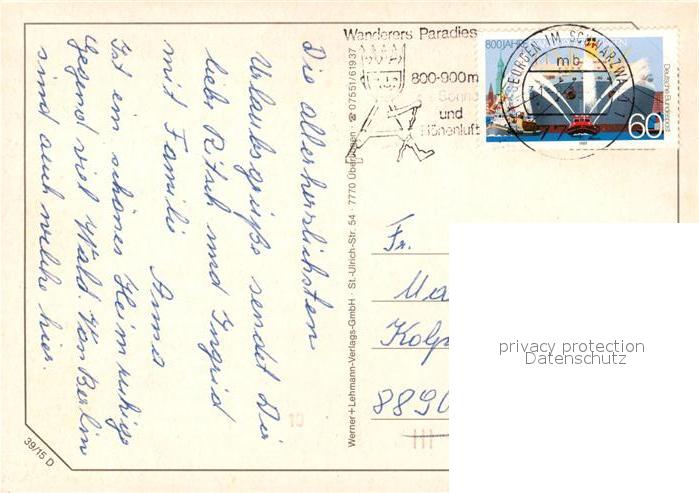 Die allerherzlichsten
Urlaubsgrüße sendet Dir
liebe Ritsch und Ingrid
mit Familie Anna
Ist ein schönes Heim ruhige
Gegend viel Wald. Von Berlin
sind auch welche hier.
39/15 D
Werner+Lehmann-Verlags-GmbH · St.-Ulrich-Str. 54 · 7770 Überlingen · ☎ 07551/61937
Wanderers Paradies
800-900m
Sonne
und
Höhenluft
GEORGEN IM SCHWARZWALD 1
mb
77
800 JAHRE
Deutsche Bundespost
60
Fr.
Ma
Kolp
8890
privacy protection
Datenschutz